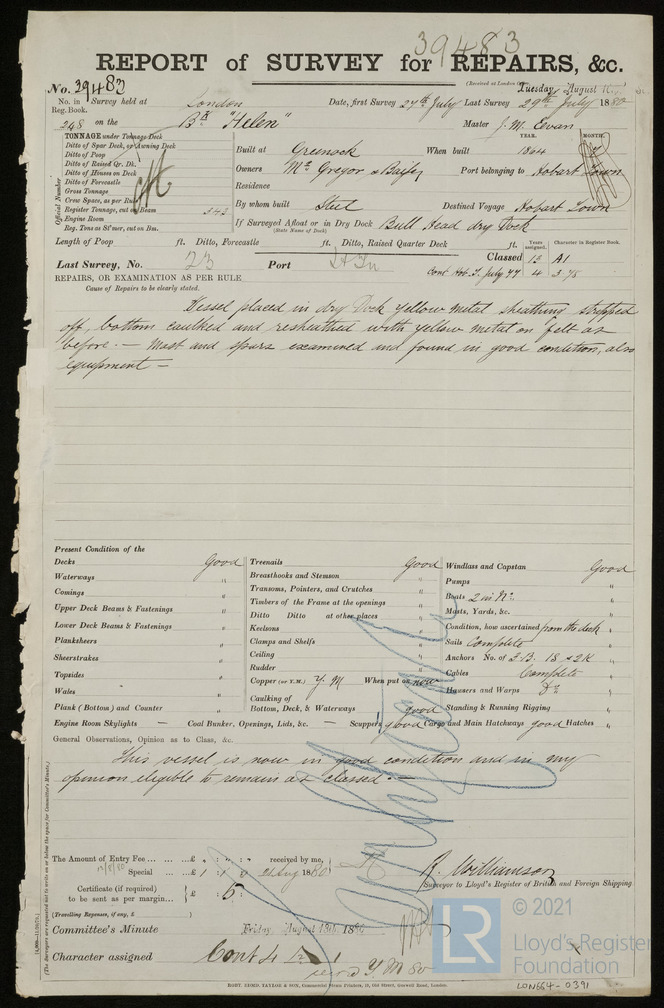 39483
REPORT of SURVEY for REPAIRS, &c.
(Received at London Tuesday, August
No. 39483
No. in Reg. Book. 248
Survey held at London Date, first Survey 27th July Last Survey 29th July 1880
on the Bk "Helen" Master J. M. Eevan
TONNAGE under Tonnage Deck
Ditto of Spar Deck, or Awning Deck
Ditto of Poop
Ditto of Raised Qr. Dk.
Ditto of Houses on Deck
Ditto of Forecastle
Gross Tonnage
Crew Space, as per Rule
Register Tonnage, cut on Beam 343
Engine Room
Reg. Tons as St'mer, cut on Bm.
Official Number
YEAR. MONTH.
Built at Greenock When built 1864 7
Owners McGregor & Bailey Port belonging to Hobart Town
Residence
By whom built Steel Destined Voyage Hobart Town
If Surveyed Afloat or in Dry Dock Bull Head dry Dock
(State Name of Dock)
Length of Poop ft. Ditto, Forecastle ft. Ditto, Raised Quarter Deck ft.
Years assigned. Character in Register Book.
Last Survey, No. 23 Port Classed 12 A1
Cont. Hob. T. July 77 4 3 78
REPAIRS, OR EXAMINATION AS PER RULE
Cause of Repairs to be clearly stated.
Vessel placed in dry Dock yellow metal sheathing stripped
off, bottom caulked and resheathed with yellow metal on felt as
before. — Mast and spars examined and found in good condition, also
equipment —
Present Condition of the
Decks Good
Waterways "
Comings "
Upper Deck Beams & Fastenings "
Lower Deck Beams & Fastenings "
Planksheers "
Sheerstrakes "
Topsides "
Wales "
Plank (Bottom) and Counter "
Treenails Good
Breasthooks and Stemson "
Transoms, Pointers, and Crutches "
Timbers of the Frame at the openings "
Ditto Ditto at other places "
Keelsons "
Clamps and Shelfs "
Ceiling "
Rudder "
Copper (or Y.M.) Y M When put on now
Caulking of Bottom, Deck, & Waterways good
Windlass and Capstan Good
Pumps "
Boats 2 in No. "
Masts, Yards, &c. "
Condition, how ascertained from the deck
Sails Complete
Anchors No. of 3 B. 1 S. & 2 K
Cables Complete
Hausers and Warps Do
Standing & Running Rigging "
Engine Room Skylights — Coal Bunker, Openings, Lids, &c. — Scuppers good Cargo and Main Hatchways good Hatches "
General Observations, Opinion as to Class, &c.
This vessel is now in good condition and in my
opinion eligible to remain as classed. —
The Amount of Entry Fee ... £ : : received by me,
Special ... £ 1 : 1 : 0 1880
Certificate (if required) to be sent as per margin... £ 5
(Travelling Expenses, if any, £ )
R. Williamson
Surveyor to Lloyd's Register of British and Foreign Shipping
Committee's Minute Friday, August 13th, 1880
Character assigned Cont 4 A 1
Y. M 80
ROBT. EDMD. TAYLOR & SON, Commercial Steam Printers, 19, Old Street, Goswell Road, London.
(The Surveyors are requested not to write on or below the space for Committee's Minute.)
LR © 2021
Lloyd's Register
Foundation
LON664-0391